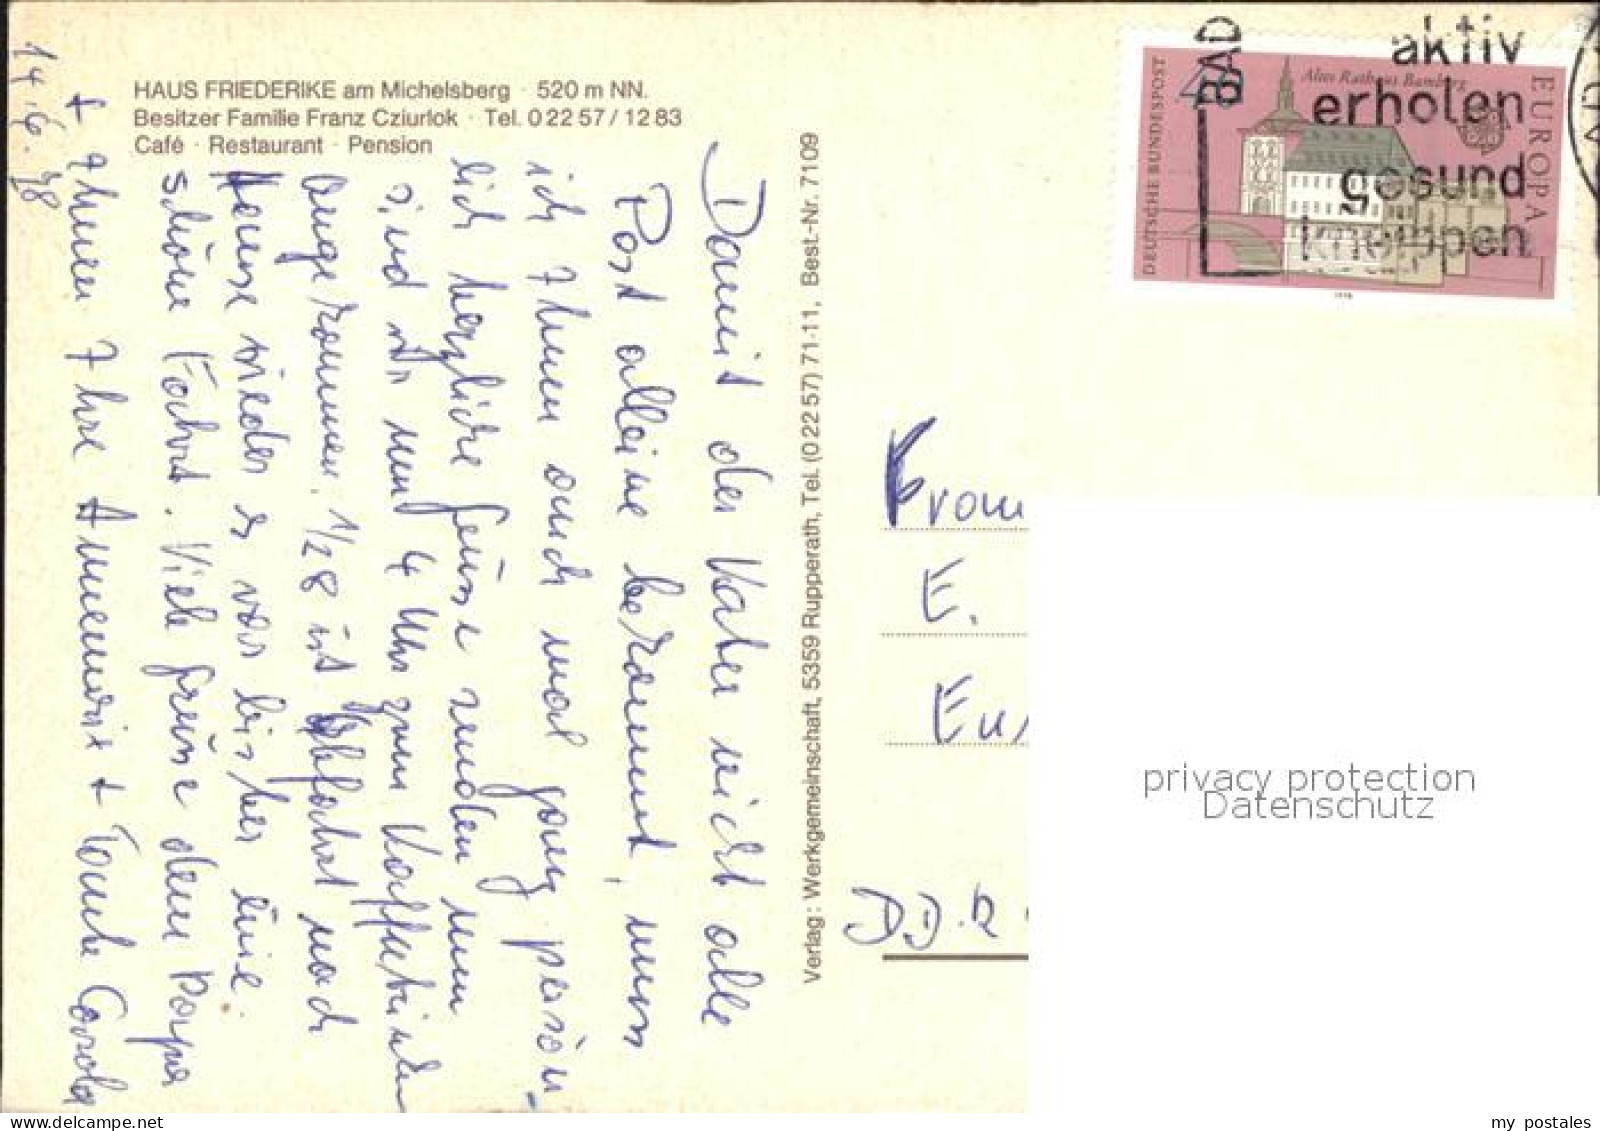 HAUS FRIEDERIKE am Michelsberg · 520 m NN.
Besitzer Familie Franz Cziurlok · Tel. 0 22 57 / 12 83
Café · Restaurant · Pension
14.6.78
Damit der Vater nicht alle
Post alleine bekommt, muss
ich Ihnen auch mal ganz persön-
lich herzliche Grüsse senden nun
sind wir um 4 Uhr zum Kaffetrinken
angekommen. 1/28 ist Abfahrt nach
Hause wieder es war bisher eine
schöne Fahrt. Viele Grüsse dem Papa
+ Ihnen Ihre Annemarie + Tante Carola
Verlag: Werkgemeinschaft, 5359 Rupperath, Tel. (0 22 57) 71-11, Best.-Nr. 7109
DEUTSCHE BUNDESPOST
40
Altes Rathaus Bamberg
EUROPA
1978
BAD
aktiv
erholen
gesund
kneippen
BAD
Frau
E.
DDR
privacy protection
Datenschutz
my postales